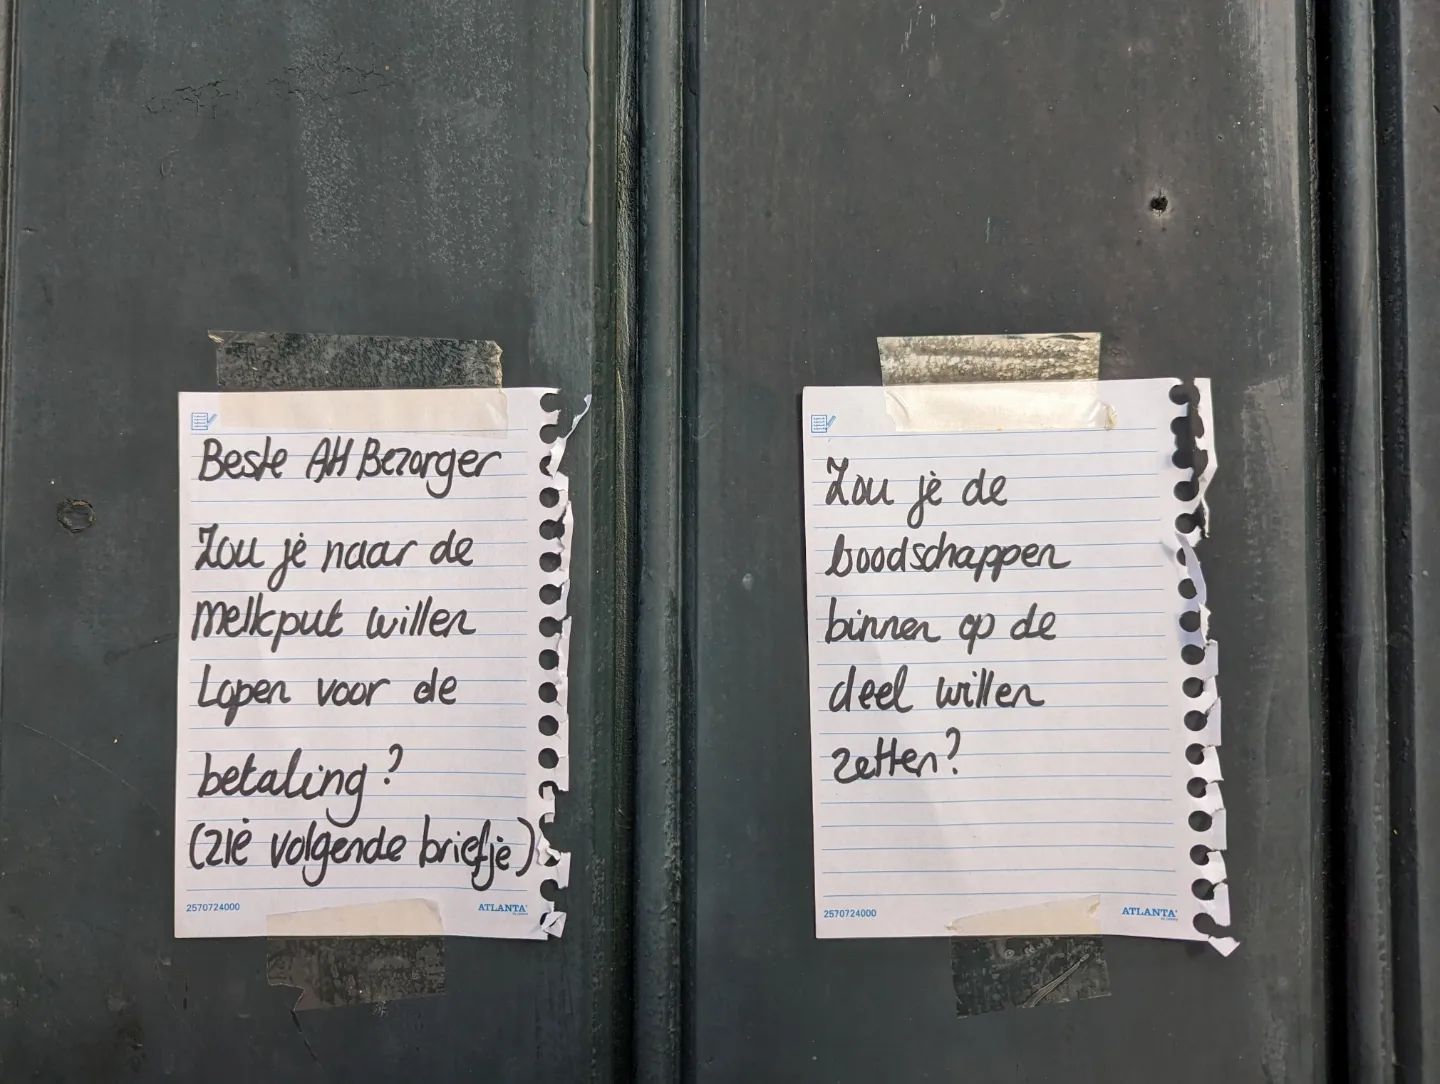 Beste AH Bezorger
Zou je naar de
Melkput willen
Lopen voor de
betaling?
(zie volgende briefje)
2570724000
ATLANTA
Zou je de
boodschappen
binnen op de
deel willen
zetten?
2570724000
ATLANTA